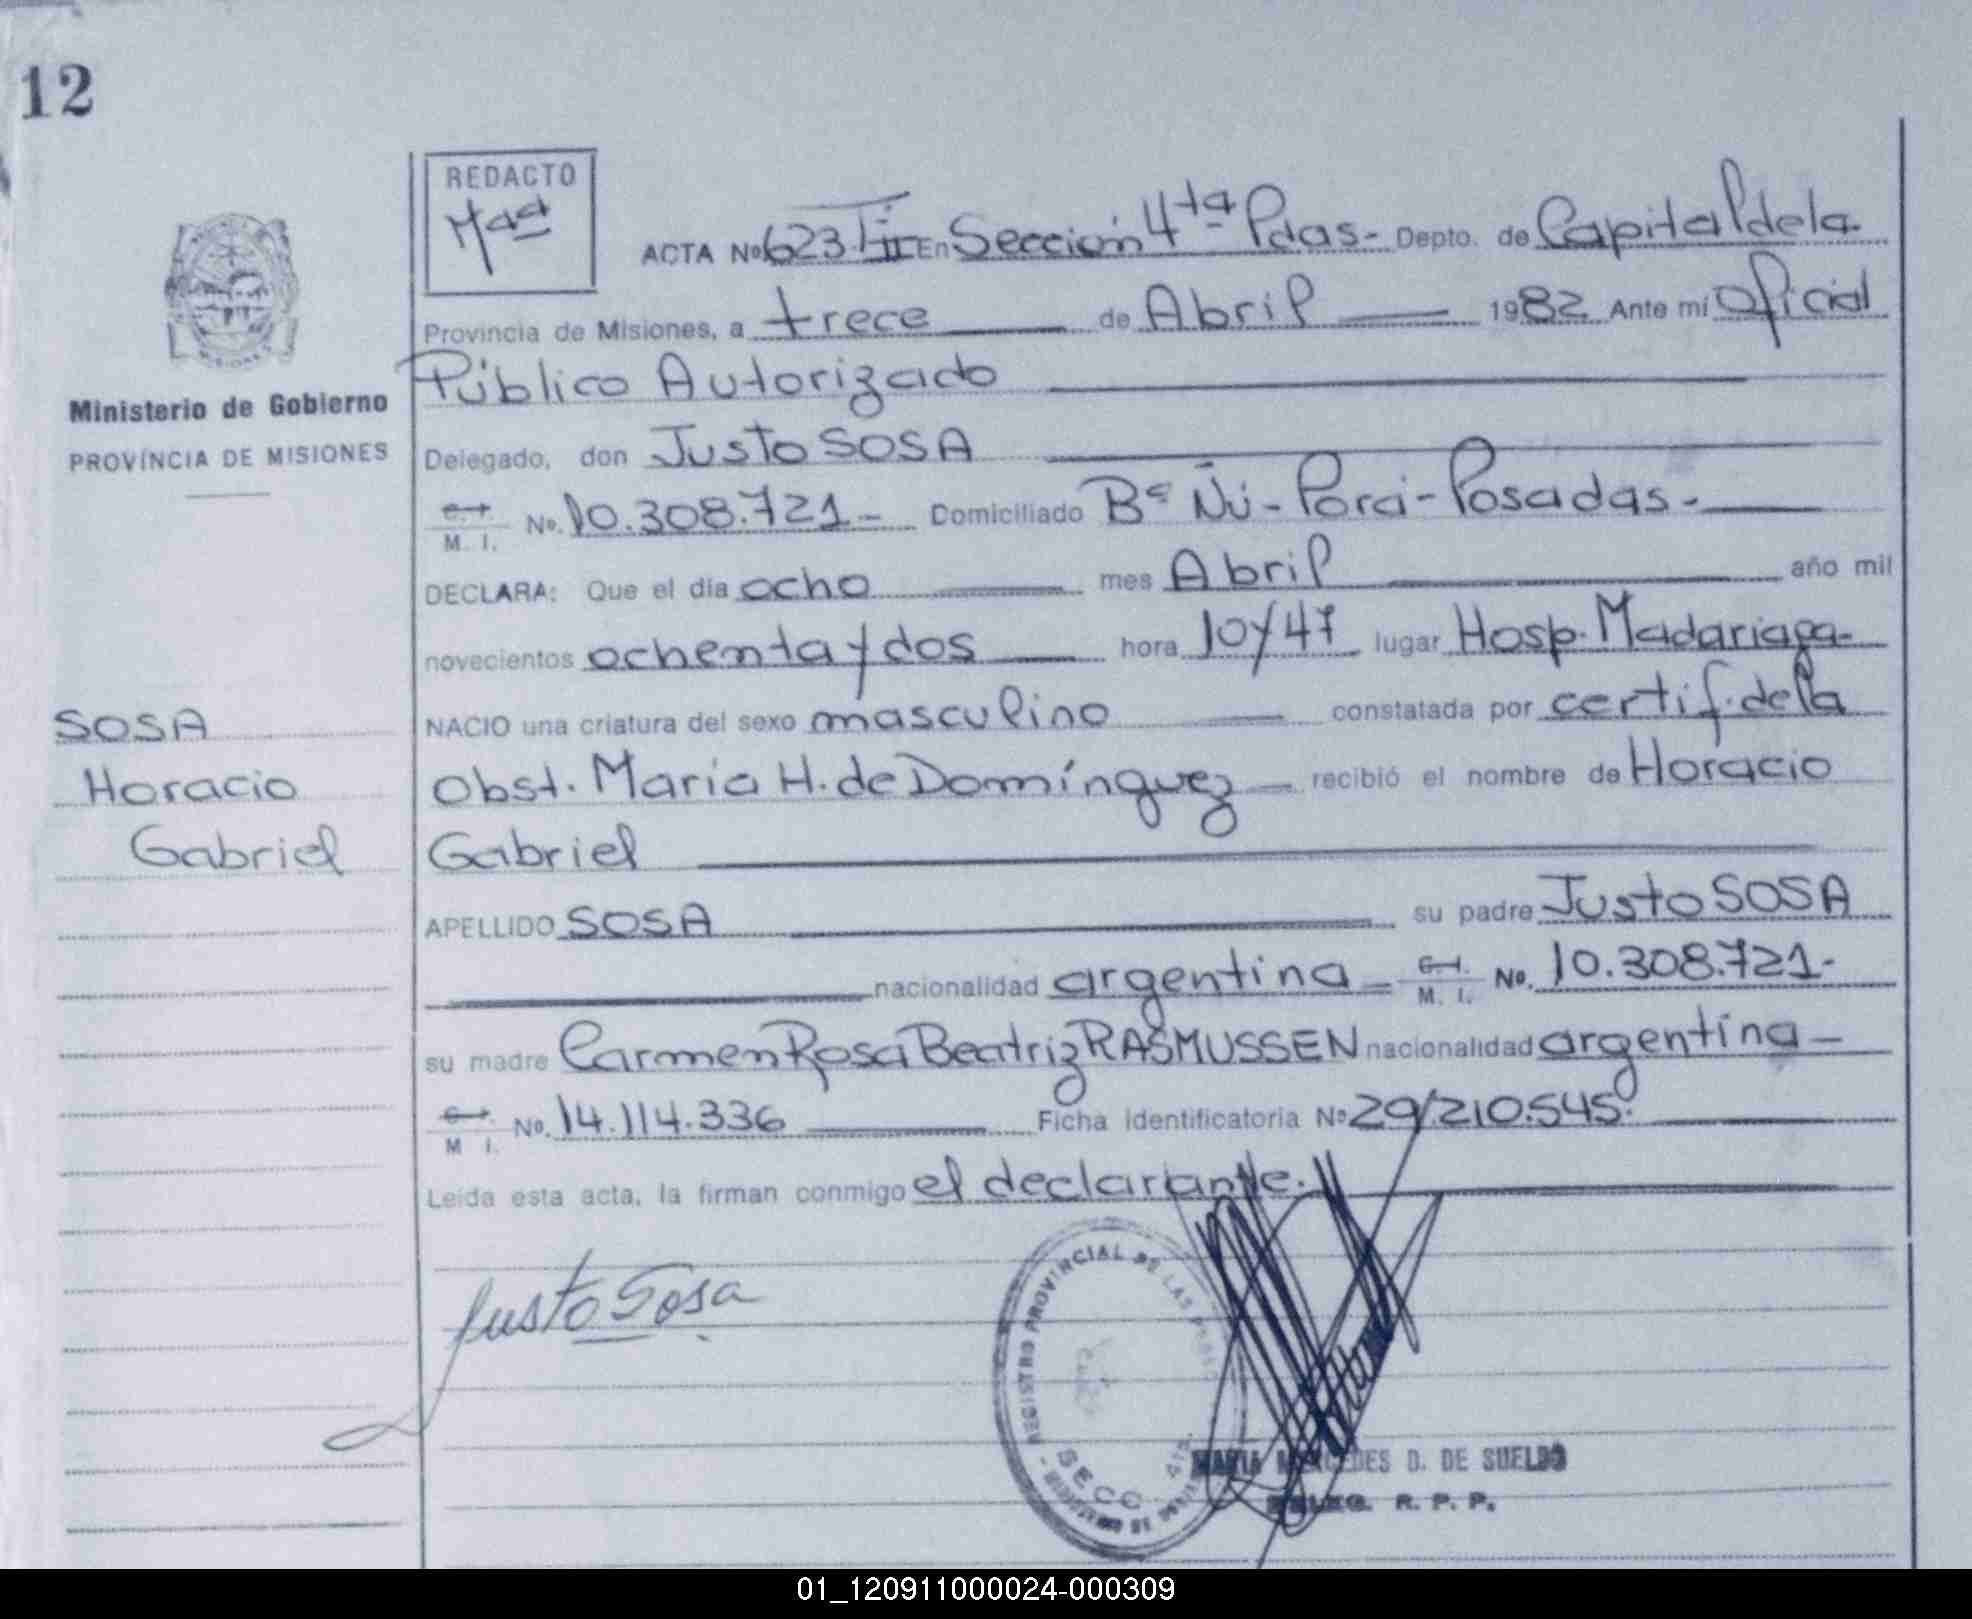 12
REDACTO
ACTA No 623 T II En Sección 4ta Pdas- Depto. de Capital de la
Provincia de Misiones, a trece de Abril 1982 Ante mí Oficial
Público Autorizado
Ministerio de Gobierno
PROVINCIA DE MISIONES
MISIONES
Delegado, don Justo SOSA
M. I. No. 10.308.721- Domiciliado Bº Ñú-Porá-Posadas-
DECLARA: Que el día ocho mes Abril año mil
novecientos ochenta y dos hora 10 y 47 lugar Hosp. Madariaga-
NACIO una criatura del sexo masculino constatada por certif. de la
Obst. María H. de Domínguez recibió el nombre de Horacio
Gabriel
SOSA
Horacio
Gabriel
APELLIDO SOSA su padre Justo SOSA
nacionalidad argentina M. I. No. 10.308.721-
su madre Carmen Rosa Beatriz RASMUSSEN nacionalidad argentina-
M I. No. 14.114.336 Ficha Identificatoria No 29/210.545.
Leída esta acta, la firman conmigo el declarante.
Justo Sosa
REGISTRO PROVINCIAL DE LAS
SECC 4ta.
MARIA MERCEDES D. DE SUELDO
DELEG. R. P. P.
01_120911000024-000309